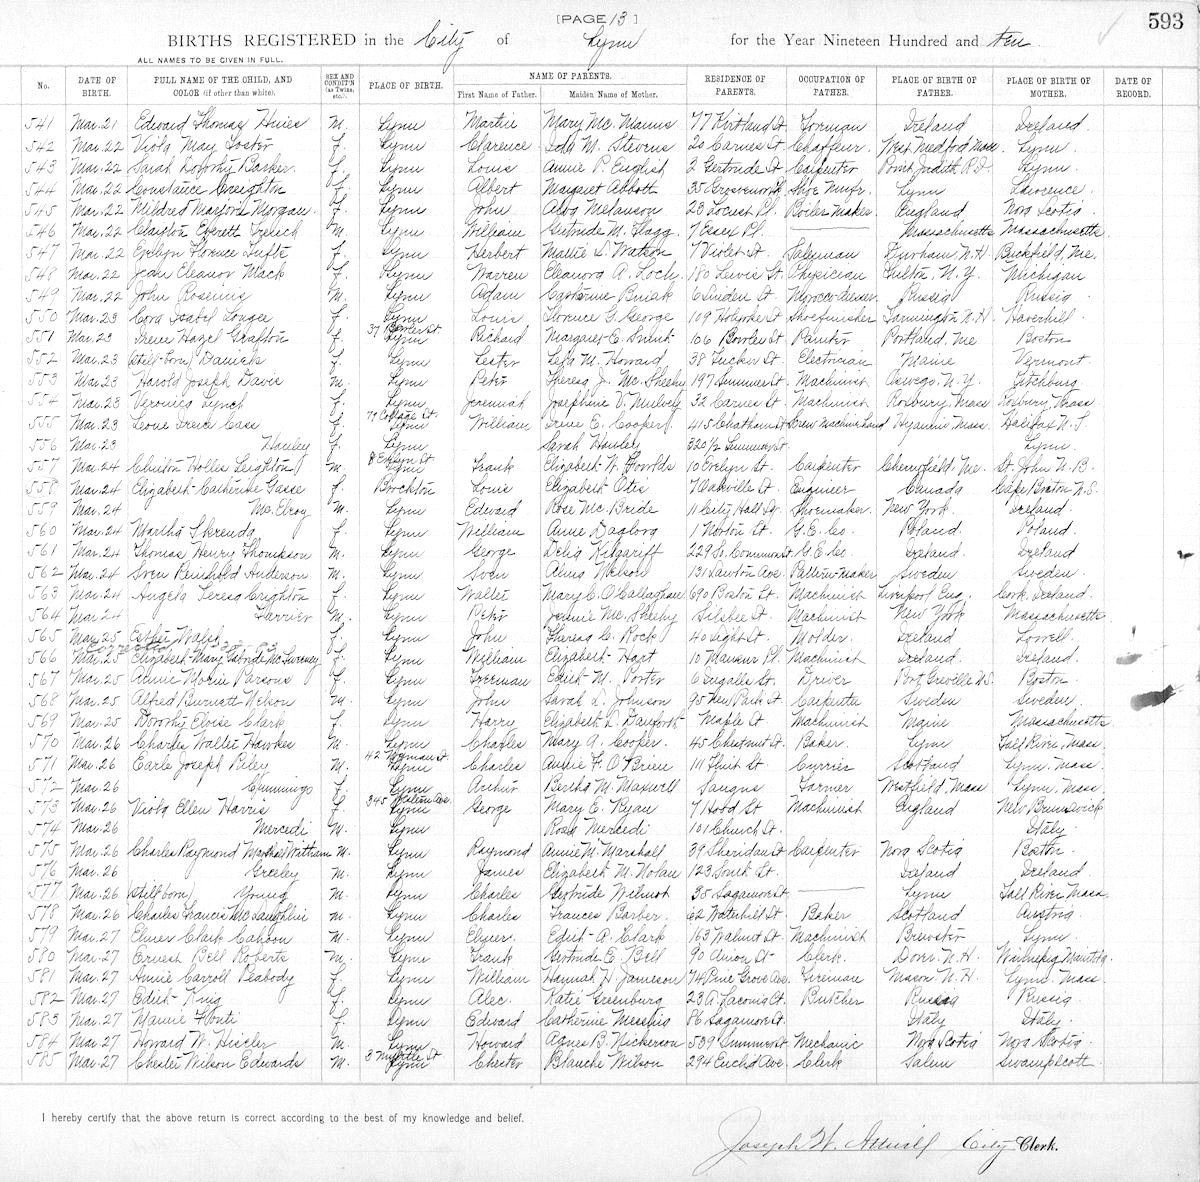 [PAGE 13]
593
BIRTHS REGISTERED in the City of Lynn for the Year Nineteen Hundred and ten
ALL NAMES TO BE GIVEN IN FULL.
No. DATE OF BIRTH. FULL NAME OF THE CHILD, AND COLOR (if other than white). SEX AND CONDIT'N (as Twins, etc.). PLACE OF BIRTH. NAME OF PARENTS. First Name of Father. Maiden Name of Mother. RESIDENCE OF PARENTS. OCCUPATION OF FATHER. PLACE OF BIRTH OF FATHER. PLACE OF BIRTH OF MOTHER. DATE OF RECORD.
541 Mar. 21 Edward Thomas Hines M. Lynn Martin Mary Mc. Manus 77 Kirtland St. Ireland Ireland.
542 Mar. 22 Viola May Foster f. Lynn Clarence Ida M. Stevens 20 Carnes St. Chauffeur. West Medford Mass. Lynn.
543 Mar. 22 Sarah Dorothy Barker f. Lynn Louis Annie P. English 2 Gertrude St. Carpenter Point Judith R.I. Lynn.
544 Mar. 22 Constance Creighton f. Lynn Albert Margaret Abbott 35 Shoe Mnfr. Lynn Lawrence.
545 Mar. 22 Mildred Marjorie Morgan. f. Lynn John Melanson 23 Locust Pl. Boiler Maker. England Nova Scotia
546 Mar. 22 Clayton Everett French M. Lynn William Gertrude M. Flagg. 7 Essex Pl. Massachusetts Massachusetts.
547 Mar. 22 Evelyn Florence Tufts f. Lynn Herbert Mattie L. Watson 7 Violet St. Salesman Durham N.H. Buckfield, Me.
548 Mar. 22 Jean Eleanor Mack f. Lynn Warren Eleanora A. 180 Lewis St. Physician Fulton, N.Y. Michigan
549 Mar. 22 John M. Lynn Adam Catherine 6 Linden St. Russia Russia.
550 Mar. 23 Cora Isabel Lougee f. Lynn Louis Florence G. George 109 Holyoke St. Shoefinisher Farmington N.H. Haverhill.
551 Mar. 23 Irene Hazel Grafton f. 37 Bowler St. Lynn Richard Margaret E. Smith 106 Bowler St. Painter Portland, Me Boston
552 Mar. 23 (Still-born) Daniels f. Lynn Lester Lela M. Howard 38 Tucker St. Electrician Maine Vermont.
553 Mar. 23 Harold Joseph Davis M. Lynn Peter Theresa J. Mc. Sheehy 197 Summer St. Machinist Oswego, N.Y. Fitchburg.
554 Mar. 23 Veronica Lynch f. Lynn Jeremiah Josephine V. Mulvey 32 Carnes St. Machinist Roxbury, Mass. Roxbury, Mass.
555 Mar. 23 Leone Irene Cass f. 79 Cottage St. Lynn William Irene E. Cooper. 415 Chatham St. Hyannis Mass. Halifax N.S.
556 Mar. 23 Hanley f. Lynn Sarah Hanley 320 1/2 Summer St. Lynn.
557 Mar. 24 Clinton Hollis Leighton M. 8 Evelyn St. Lynn Frank Elizabeth W. 10 Evelyn St. Carpenter Cherryfield, Me. St. John N.B.
558 Mar. 24 Elizabeth Catherine Gasse f. Brockton Louis Elizabeth Otis 7 Oakville St. Engineer Canada Cape Breton N.S.
559 Mar. 24 Mc. Elroy M. Lynn Edward Rose Mc. Bride 11 City Hall Sq. Shoemaker. New York. Ireland.
560 Mar. 24 Martha f. Lynn William Annie 1 Norton St. G.E. Co. Poland. Poland.
561 Mar. 24 Thomas Henry Thompson M. Lynn George Delia Kilgariff 229 So. Common St. G.E. Co. Ireland Ireland
562 Mar. 24 Sven Reinhold Anderson M. Lynn Sven Alma Nelson 131 Lawton Ave. Pattern-maker Sweden Sweden.
563 Mar. 24 Angela Teresa Crighton f. Lynn Walter Mary C. O'Callaghan 690 Boston St. Machinist Liverpool Eng. Cork, Ireland.
564 Mar. 24 Farrier M. Lynn Peter Jennie Mc. Sheehy Silsbee St. Machinist New York Massachusetts.
565 Mar. 25 Esther Walsh f. Lynn John Theresa C. Rock 40 Light St. Molder. Ireland Lowell.
Corrected
566 Mar. 25 Elizabeth Mary Gabriele McSweeney f. Lynn William Elizabeth Hart 10 Machinist Ireland. Ireland.
567 Mar. 25 Annie Marie Parsons f. Lynn Freeman Edith M. Porter 6 Ingalls St. Driver Port Greville N.S. Boston.
568 Mar. 25 Alfred Burnett Nelson M. Lynn John Sarah L. Johnson 95 New Park St. Carpenter Sweden Sweden.
569 Mar. 25 Dorothy Eloise Clark f. Lynn Harry Elizabeth L. Danforth Maple St. Machinist Maine Massachusetts.
570 Mar. 26 Charles Walter Hawkes M. Lynn Charles Mary A. Cooper. 45 Chestnut St. Baker. Lynn Fall River, Mass.
571 Mar. 26 Earle Joseph Riley M. 42 Wyman St. Lynn Charles Annie F. O'Brien 111 Fruit St. Currier Scotland Lynn, Mass.
572 Mar. 26 Cummings f. Lynn Arthur Bertha M. Maxwell Saugus Farmer Westfield, Mass Lynn, Mass.
573 Mar. 26 Viola Ellen Harris f. 345 Western Ave. Lynn George Mary E. Ryan 7 Hood St. Machinist England New Brunswick
574 Mar. 26 Mercedi M. Lynn Rosa Mercedi 101 Church St. Italy.
575 Mar. 26 Charles Raymond Marshall Witham M. Lynn Raymond Annie M. Marshall 39 Sheridan St. Carpenter Nova Scotia Boston.
576 Mar. 26 Greeley M. Lynn James Elizabeth M. Nolan 123 South St. Ireland Ireland.
577 Mar. 26 (Stillborn) Young M. Lynn Charles Gertrude Wilmot 35 Sagamore St. Lynn Fall River Mass.
578 Mar. 26 Charles Francis McLaughlin M. Lynn Charles Frances Barber. 62 Waterhill St. Baker Scotland Austria.
579 Mar. 27 Elmer Clark Cahoon M. Lynn Elmer. Edith A. Clark 163 Walnut St. Machinist Brewster Lynn.
580 Mar. 27 Ernest Bell Roberts M. Lynn Frank Gertrude E. Bell 90 Clerk. Dover N.H. Winnipeg Manitba
581 Mar. 27 Annie Carroll Peabody f. Lynn William Hannah H. Jameson 74 Pine Grove Ave. Fireman Mason N.H. Lynn Mass.
582 Mar. 27 Edith King f. Lynn Alec. Katie Greenburg 23 A. Laconia Ct. Butcher Russia Russia.
583 Mar. 27 Mamie Conti f. Lynn Edward Catherine Messina 86 Sagamore St. Italy Italy.
584 Mar. 27 Howard W. Hisler M. Lynn Howard Agnes B. Nickerson 539 Summer St. Mechanic Nova Scotia Nova Scotia.
585 Mar. 27 Chester Wilson Edwards M. 3 Myrtle St. Lynn Chester Blanche Wilson 294 Euclid Ave. Clerk Salem Swampscott.
I hereby certify that the above return is correct according to the best of my knowledge and belief.
Joseph W. Attwill City Clerk.